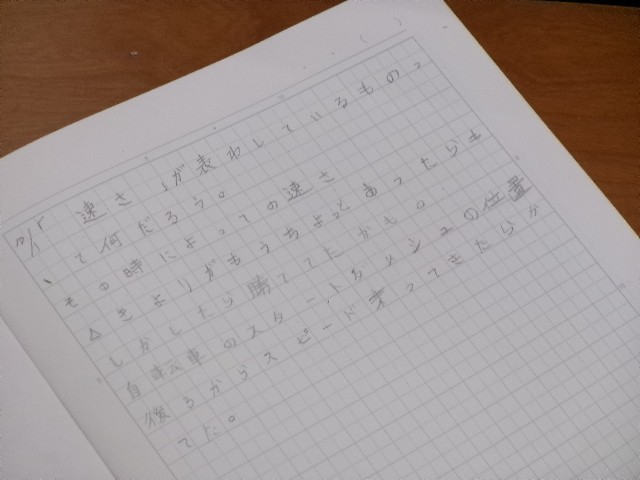 「速さ」が表わしているものっ
て何だろう。
その時によっての速さ
△きょりがもうちょっとあったらも
しかしたら勝ててたかも。
自転車のスタートダッシュの位置
後ろからスピードってきたらか
てた。